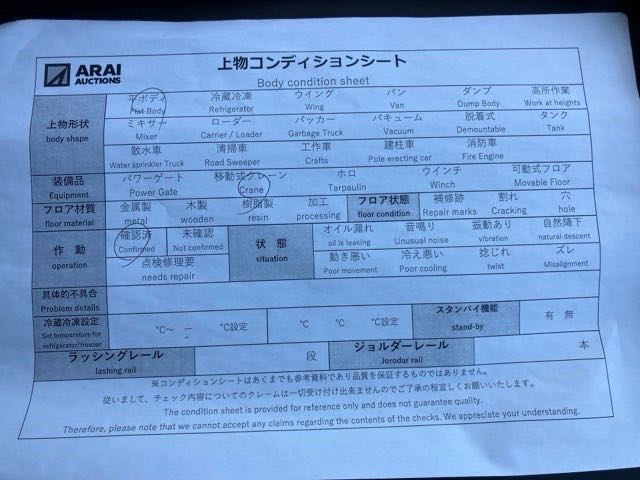 ARAI
AUCTIONS
上物コンディションシート
Body condition sheet
上物形状
body shape
平ボディ 冷蔵冷凍 ウイング バン ダンプ 高所作業
Flat Body Refrigerator Wing Van Dump Body Work at heights
ミキサー ローダー パッカー バキューム 脱着式 タンク
Mixer Carrier / Loader Garbage Truck Vacuum Demountable Tank
散水車 清掃車 工作車 建柱車 消防車
Water sprinkler Truck Road Sweeper Crafts Pole erecting car Fire Engine
装備品
Equipment
パワーゲート 移動式クレーン ホロ ウインチ 可動式フロア
Power Gate Crane Tarpaulin Winch Movable Floor
フロア材質
floor material
金属製 木製 樹脂製 加工
metal wooden resin processing
フロア状態
floor condition
補修跡 割れ 穴
Repair marks Cracking hole
作 動
operation
確認済 未確認
Confirmed Not confirmed
点検修理要
needs repair
状 態
situation
オイル漏れ 音鳴り 振動あり 自然降下
oil is leaking Unusual noise vibration natural descent
動き悪い 冷え悪い 捻じれ ズレ
Poor movement Poor cooling twist Misalignment
具体的不具合
Problem details
冷蔵冷凍設定
Set temperature for
refrigerator/freezer
℃～ － ℃設定
-
℃ ℃ ℃設定
スタンバイ機能
stand-by
有 無
ラッシングレール
lashing rail
段
ジョルダーレール
Jorodar rail
本
※コンディションシートはあくまでも参考資料であり品質を保証するものではありません。
従いまして、チェック内容についてのクレームは一切受け付け出来ませんのでご了承の程宜しくお願いいたします。
The condition sheet is provided for reference only and does not guarantee quality.
Therefore, please note that we cannot accept any claims regarding the contents of the checks. We appreciate your understanding.